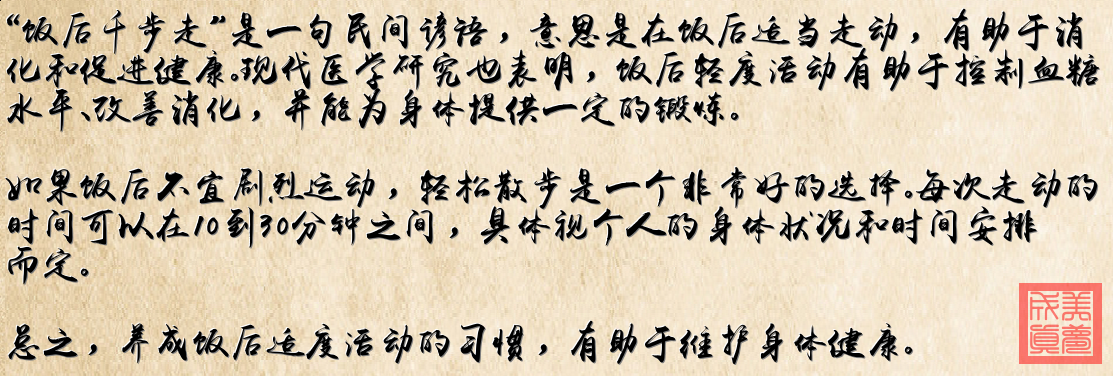 “饭后千步走”是一句民间谚语，意思是在饭后适当走动，有助于消
化和促进健康。现代医学研究也表明，饭后轻度活动有助于控制血糖
水平、改善消化，并能为身体提供一定的锻炼。
如果饭后不宜剧烈运动，轻松散步是一个非常好的选择。每次走动的
时间可以在10到30分钟之间，具体视个人的身体状况和时间安排
而定。
总之，养成饭后适度活动的习惯，有助于维护身体健康。
美梦
成真